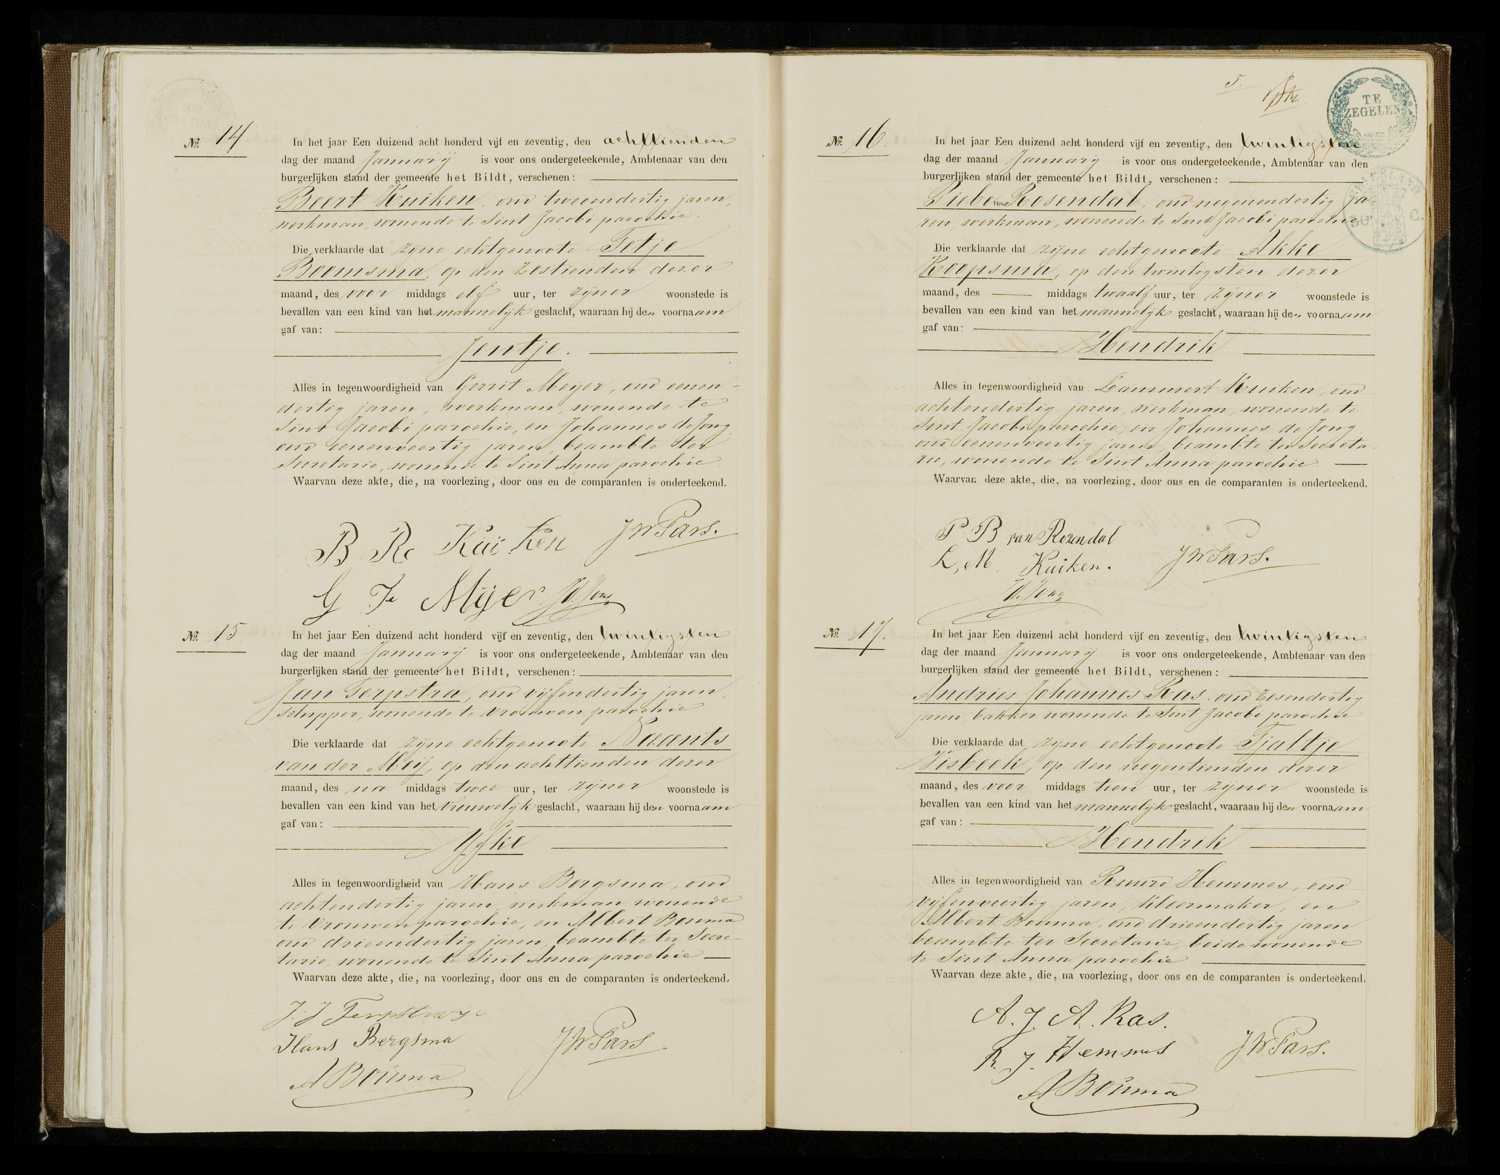 No. 14
In het jaar Een duizend acht honderd vijf en zeventig, den achttienden
dag der maand January is voor ons ondergeteekende, Ambtenaar van den
burgerlijken stand der gemeente het Bildt, verschenen:
Beert Kuiken, oud tweeendertig jaren,
werkman, wonende te Sint Jacobi parochie
Die verklaarde dat zyne echtgenoote Tetje
Boomsma, op den zestienden dezer
maand, des voor middags elf uur, ter zijner woonstede is
bevallen van een kind van het mannelyk geslacht, waaraan hij den voornaam
gaf van:
Jentje.
Alles in tegenwoordigheid van Gerrit Meyer, oud eenen-
dertig jaren, werkman, wonende te
Sint Jacobi parochie, en Johannes de Jong
oud eenenveertig jaren, beambte ter
Secretarie, wonende te Sint Anna parochie
Waarvan deze akte, die, na voorlezing, door ons en de comparanten is onderteekend.
B R Kuiken JW Pars.
G Mijer
No. 15
In het jaar Een duizend acht honderd vijf en zeventig, den twintigsten
dag der maand Januarij is voor ons ondergeteekende, Ambtenaar van den
burgerlijken stand der gemeente het Bildt, verschenen:
Jan Terpstra, oud vijfendertig jaren,
schipper, wonende te Vrouwen parochie
Die verklaarde dat zyne echtgenoote Naants
van der Meij, op den achttienden dezer
maand, des na middags twee uur, ter zijner woonstede is
bevallen van een kind van het vrouwelyk geslacht, waaraan hij den voornaam
gaf van:
Alles in tegenwoordigheid van Hans Bergsma, oud
achtendertig jaren, werkman, wonende
te Vrouwenparochie, en Albert Bouma
oud drieendertig jaren, beambte ter Secre-
tarie, wonende te Sint Anna parochie
Waarvan deze akte, die, na voorlezing, door ons en de comparanten is onderteekend.
J. J Terpstra
Hans Bergsma JW Pars
A Bouma
5
TE
ZEGELEN
No. 16
In het jaar Een duizend acht honderd vijf en zeventig, den twintigsten
dag der maand January is voor ons ondergeteekende, Ambtenaar van den
burgerlijken stand der gemeente het Bildt, verschenen:
Piebe van Rosendal, oud negenendertig ja-
ren, werkman, wonende te Sint Jacobi parochie
Die verklaarde dat zijne echtgenoote Akke
Koopsma, op den twintigsten dezer
maand, des middags twaalf uur, ter zijner woonstede is
bevallen van een kind van het mannelyk geslacht, waaraan hij den voornaam
gaf van:
Hendrik
Alles in tegenwoordigheid van Lammert Kuiken, oud
achtendertig jaren, werkman, wonende te
Sint Jacobi parochie, en Johannes de Jong
oud eenenveertig jaren, beambte ter Secreta-
rie, wonende te Sint Anna parochie
Waarvan deze akte, die, na voorlezing, door ons en de comparanten is onderteekend.
P B van Rozendal
L. M. Kuiken. JW Pars.
No. 17.
In het jaar Een duizend acht honderd vijf en zeventig, den twintigsten
dag der maand January is voor ons ondergeteekende, Ambtenaar van den
burgerlijken stand der gemeente het Bildt, verschenen:
Andries Johannes Kas, oud zesendertig
jaren bakker wonende te Sint Jacobi parochie
Die verklaarde dat zyne echtgenoote Tjaltje
op den negentienden dezer
maand, des voor middags tien uur, ter zijner woonstede is
bevallen van een kind van het mannelyk geslacht, waaraan hij den voornaam
gaf van:
Hendrik
Alles in tegenwoordigheid van Hemmes, oud
vijfenveertig jaren, kleermaker, en
Albert Bouma, oud drieendertig jaren
beambte ter Secretarie, beide wonende
te Sint Anna parochie
Waarvan deze akte, die, na voorlezing, door ons en de comparanten is onderteekend.
A. J. A. Kas.
R. J. Hemmes JW Pars.
A Bouma